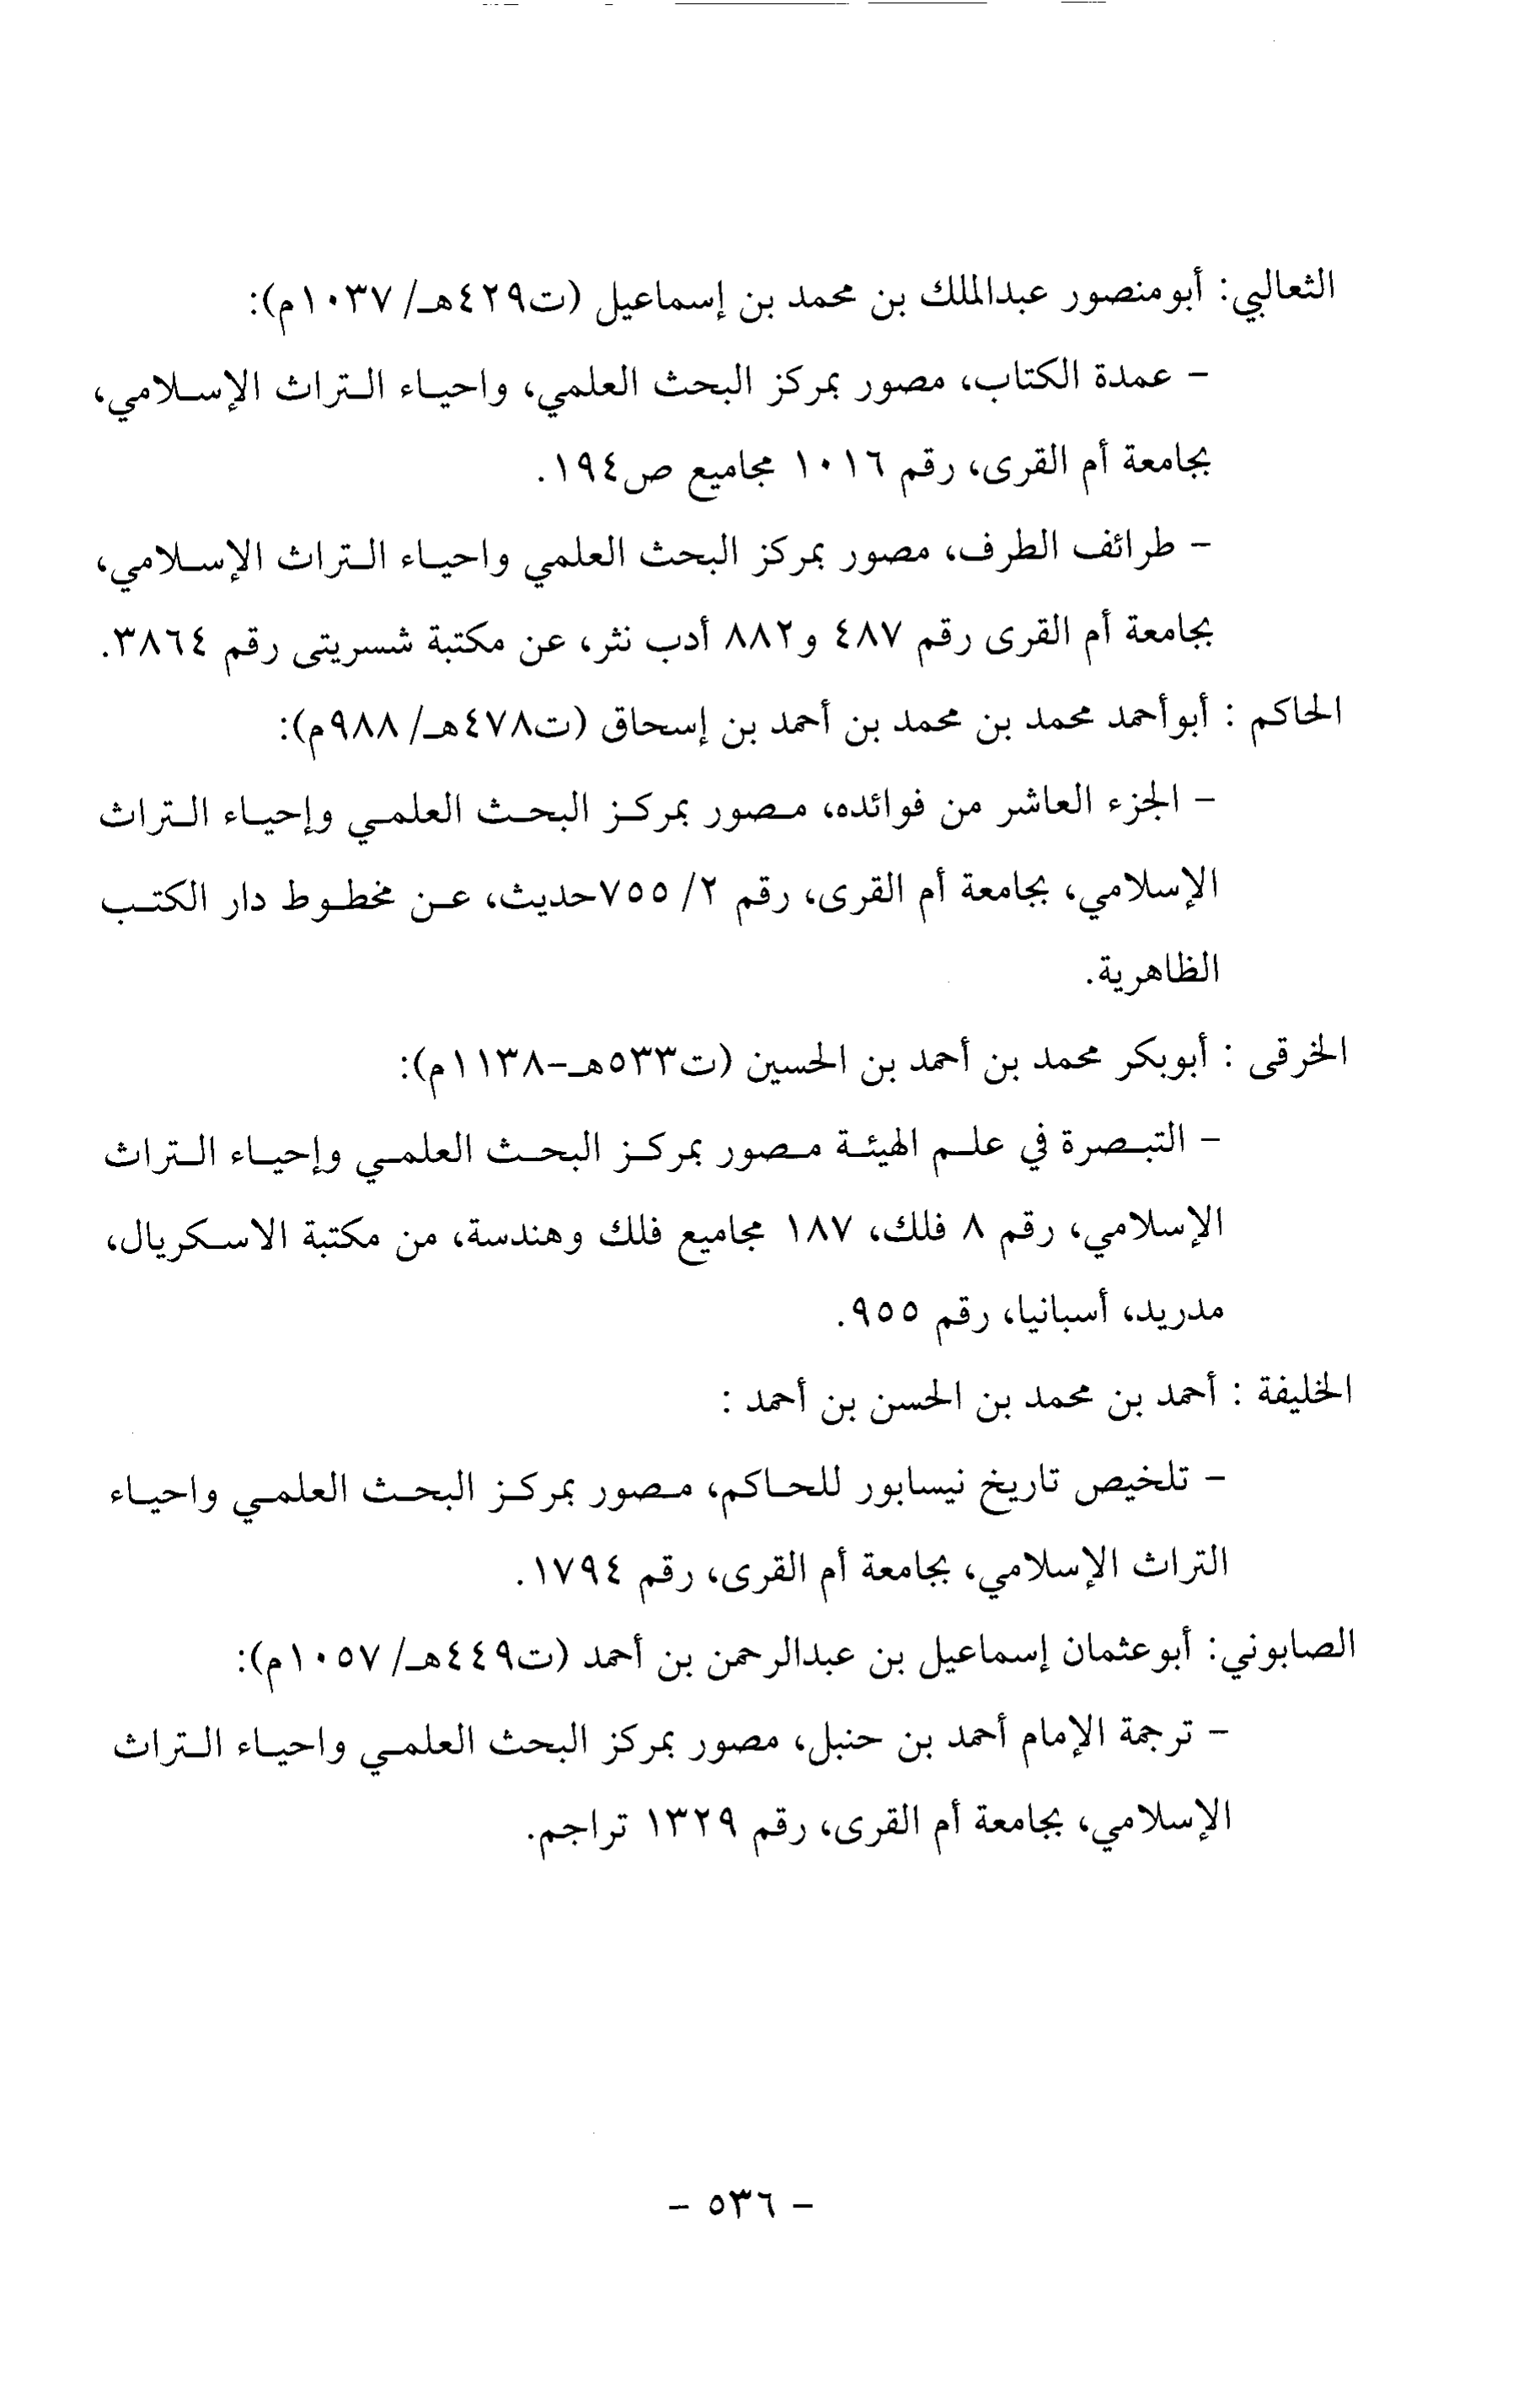 الثعالبي: أبومنصور عبدالملك بن محمد بن إسماعيل (ت٤٢٩هـ/ ١٠٣٧م):
- عمدة الكتاب، مصور بمركز البحث العلمي، واحياء التراث الإسلامي،
بجامعة أم القرى، رقم ١٠١٦ مجاميع ص١٩٤.
- طرائف الطرف، مصور بمركز البحث العلمي واحياء التراث الإسلامي،
بجامعة أم القرى رقم ٤٨٧ و٨٨٢ أدب نثر، عن مكتبة شسريتى رقم ٣٨٦٤.
الحاكم : أبوأحمد محمد بن محمد بن أحمد بن إسحاق (ت٤٧٨هـ/ ٩٨٨م):
- الجزء العاشر من فوائده، مصور بمركز البحث العلمي وإحياء التراث
الإسلامي، بجامعة أم القرى، رقم ٢/ ٧٥٥حديث، عن مخطوط دار الكتب
الظاهرية.
الخرقى : أبوبكر محمد بن أحمد بن الحسين (ت٥٣٣هـ-١١٣٨م):
- التبصرة في علم الهيئة مصور بمركز البحث العلمي وإحياء التراث
الإسلامي، رقم ٨ فلك، ١٨٧ مجاميع فلك وهندسة، من مكتبة الاسكريال،
مدريد، أسبانيا، رقم ٩٥٥.
الخليفة : أحمد بن محمد بن الحسن بن أحمد :
- تلخيص تاريخ نيسابور للحاكم، مصور بمركز البحث العلمي واحياء
التراث الإسلامي، بجامعة أم القرى، رقم ١٧٩٤.
الصابوني: أبوعثمان إسماعيل بن عبدالرحمن بن أحمد (ت٤٤٩هـ/ ١٠٥٧م):
- ترجمة الإمام أحمد بن حنبل، مصور بمركز البحث العلمي واحياء التراث
الإسلامي، بجامعة أم القرى، رقم ١٣٢٩ تراجم.
- ٥٣٦ -